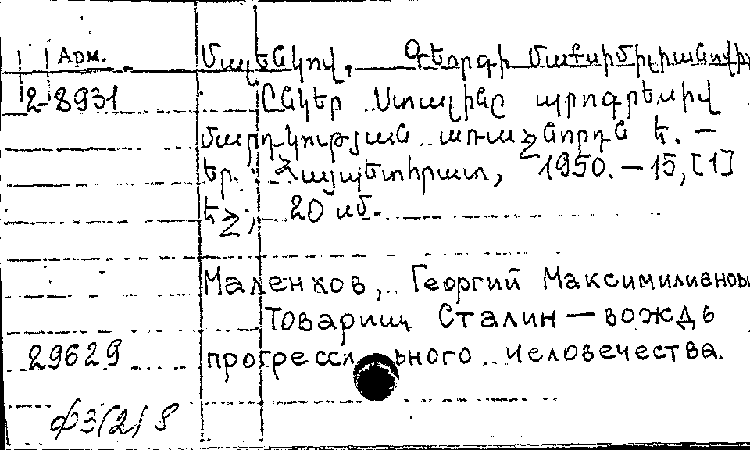 Арм.
Մալենկով, Գեորգի Մաքսիմիլիանովիչ
2-8931
Ընկեր Ստալինը պրոգրեսիվ
մարդկության առաջնորդն է. –
Եր. : Հայպետհրատ, 1950. – 15, [1]
էջ; 20 սմ.
Маленков, Георгий Максимилианов
Товарищ Сталин — вождь
29629
прогрессивного человечества.
ф3(2) 8